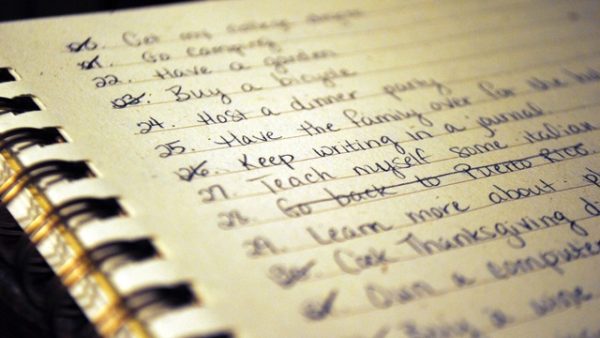 20. Get my college degree
21. Go camping
22. Have a garden
23. Buy a bicycle
24. Host a dinner party
25. Have the family over for the
26. Keep writing in a journal
27. Teach myself some italian
28. Go back to Puerto Rico
29. Learn more about
30. Cook Thanksgiving
31. Own a computer
Buy a